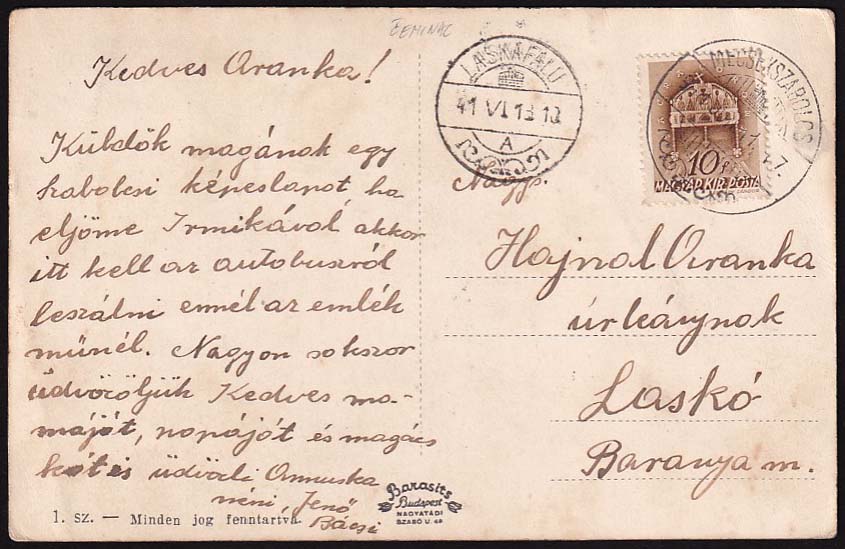 ČEMINAC
Kedves Aranka!
Küldök magának egy
szabolcsi képeslapot ha
eljöme Irmikával akkor
itt kell az autobuszról
leszálni ennél az emlék
münél. Nagyon sokszor
üdvözöljük Kedves ma-
máját, papáját és magács
kát is üdvözli Annuska
néni, Jenő
Bácsi
1. sz. — Minden jog fenntartva
Barasits
Budapest
NAGYATÁDI
SZABÓ U. 48
LASKAFALU
41 VI 13 12
A
MECSEKSZABOLCS
10 f
MAGYAR KIR. POSTA
Nagys.
Hajnal Aranka
úrleánynak
Laskó
Baranya m.